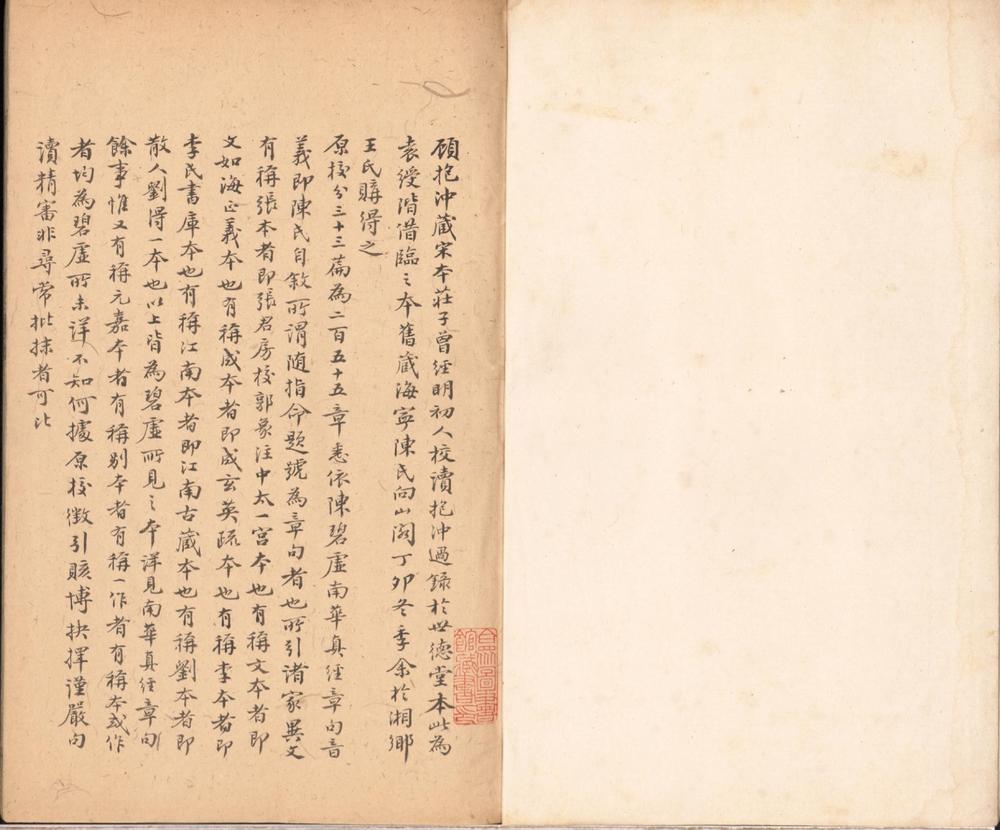 顧抱沖藏宋本莊子曾經明初人校讀抱沖過錄於世德堂本此為
袁綬階借臨之本舊藏海寧陳氏向山閣丁卯冬季余於湘鄉
王氏購得之
原校分三十三篇為二百五十五章悉依陳碧虛南華真經章句音
義即陳氏自敘所謂随指命題號為章句者也所引諸家異文
有稱張本者即張君房校郭象注中太一宮本也有稱文本者即
文如海正義本也有稱成本者即成玄英疏本也有稱李本者即
李氏書庫本也有稱江南本者即江南古藏本也有稱劉本者即
散人劉得一本也以上皆為碧虛所見之本詳見南華真經章句
餘事惟又有稱元嘉本者有稱別本者有稱一作者有稱本或作
者均為碧虛所未詳不知何據原校徵引賅博抉擇謹嚴句
讀精審非尋常批抹者可比
館藏書